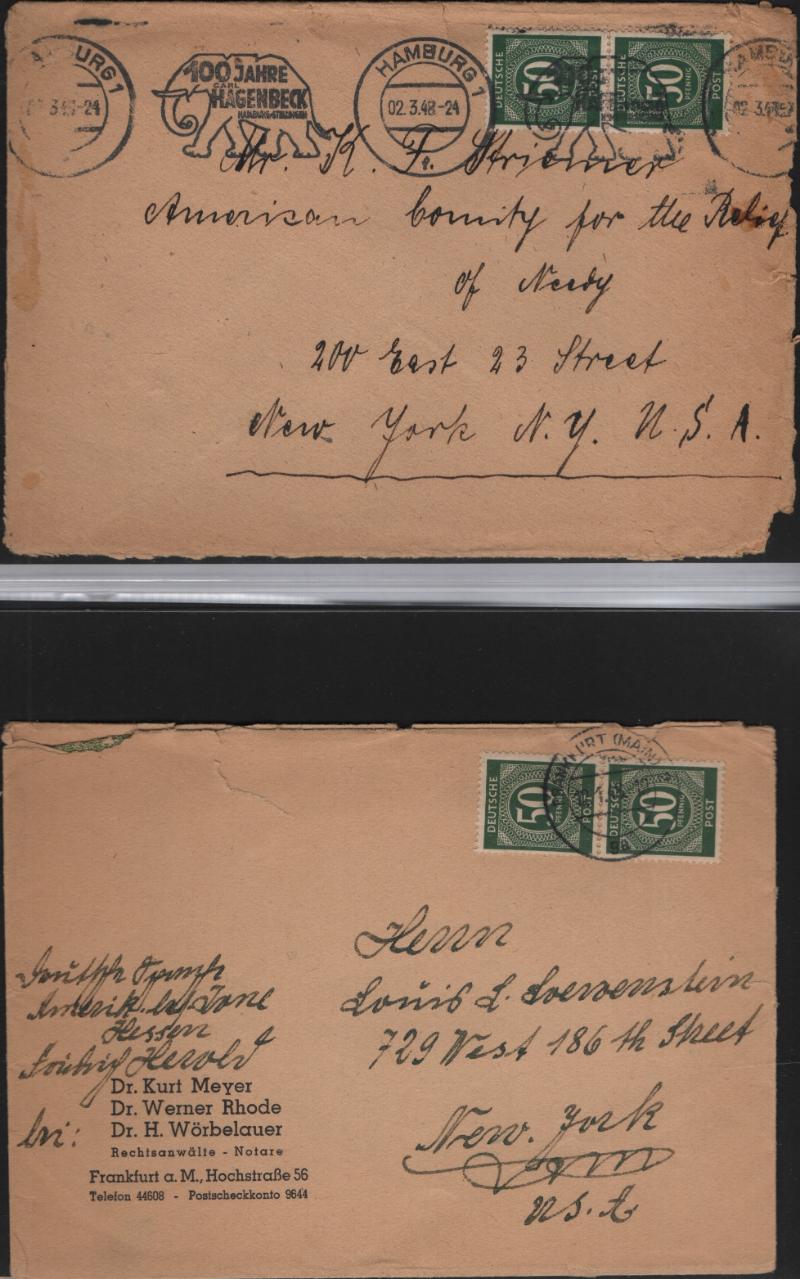 HAMBURG 1
100 JAHRE
CARL
HAGENBECK
HAMBURG-STELLINGEN
HAMBURG 1
02.3.48-24
DEUTSCHE 50 POST
DEUTSCHE 50 POST
Mr. K. F. Striemer
American Comity for the Relief
of Needy
200 East 23 Street
New York N.Y. U.S.A.
FRANKFURT (MAIN)
DEUTSCHE 50 PFENNIG POST
DEUTSCHE 50 PFENNIG POST
Herrn
Louis L. Loewenstein
729 West 186 th Street
New. York
U.S.A
Deutsche Sprache
Amerik. bes. Zone
Hessen
Herold
bei:
Dr. Kurt Meyer
Dr. Werner Rhode
Dr. H. Wörbelauer
Rechtsanwälte - Notare
Frankfurt a. M., Hochstraße 56
Telefon 44608 - Postscheckkonto 9644